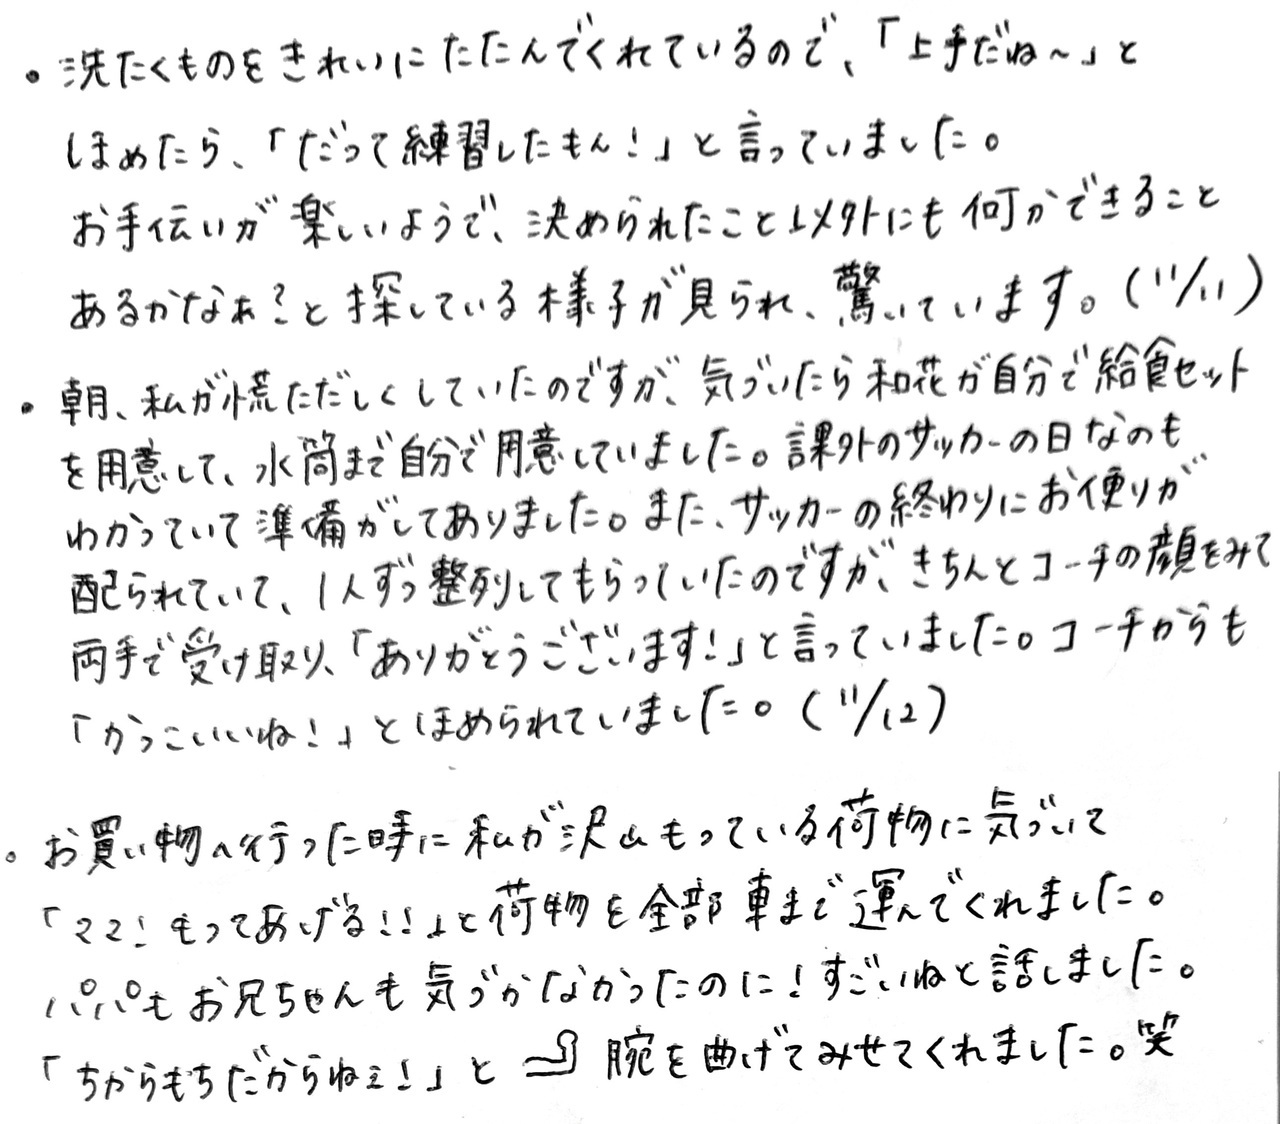 ・洗たくものをきれいにたたんでくれているので、「上手だね〜」と
ほめたら、「だって練習したもん!」と言っていました。
お手伝いが楽しいようで、決められたこと以外にも何かできること
あるかなぁ?と探している様子が見られ、驚いています。(11/11)
・朝、私が慌ただしくしていたのですが、気づいたら和花が自分で給食セット
を用意して、水筒まで自分で用意していました。課外のサッカーの日なのも
わかっていて準備がしてありました。また、サッカーの終わりにお便りが
配られていて、1人ずつ整列してもらっていたのですが、きちんとコーチの顔をみて
両手で受け取り、「ありがとうございます!」と言っていました。コーチからも
「かっこいいね!」とほめられていました。(11/12)
・お買い物へ行った時に私が沢山もっている荷物に気づいて
「ママ!もってあげる!!」と荷物を全部車まで運んでくれました。
パパもお兄ちゃんも気づかなかったのに!すごいねと話しました。
「ちからもちだからねぇ!」と 腕を曲げてみせてくれました。笑